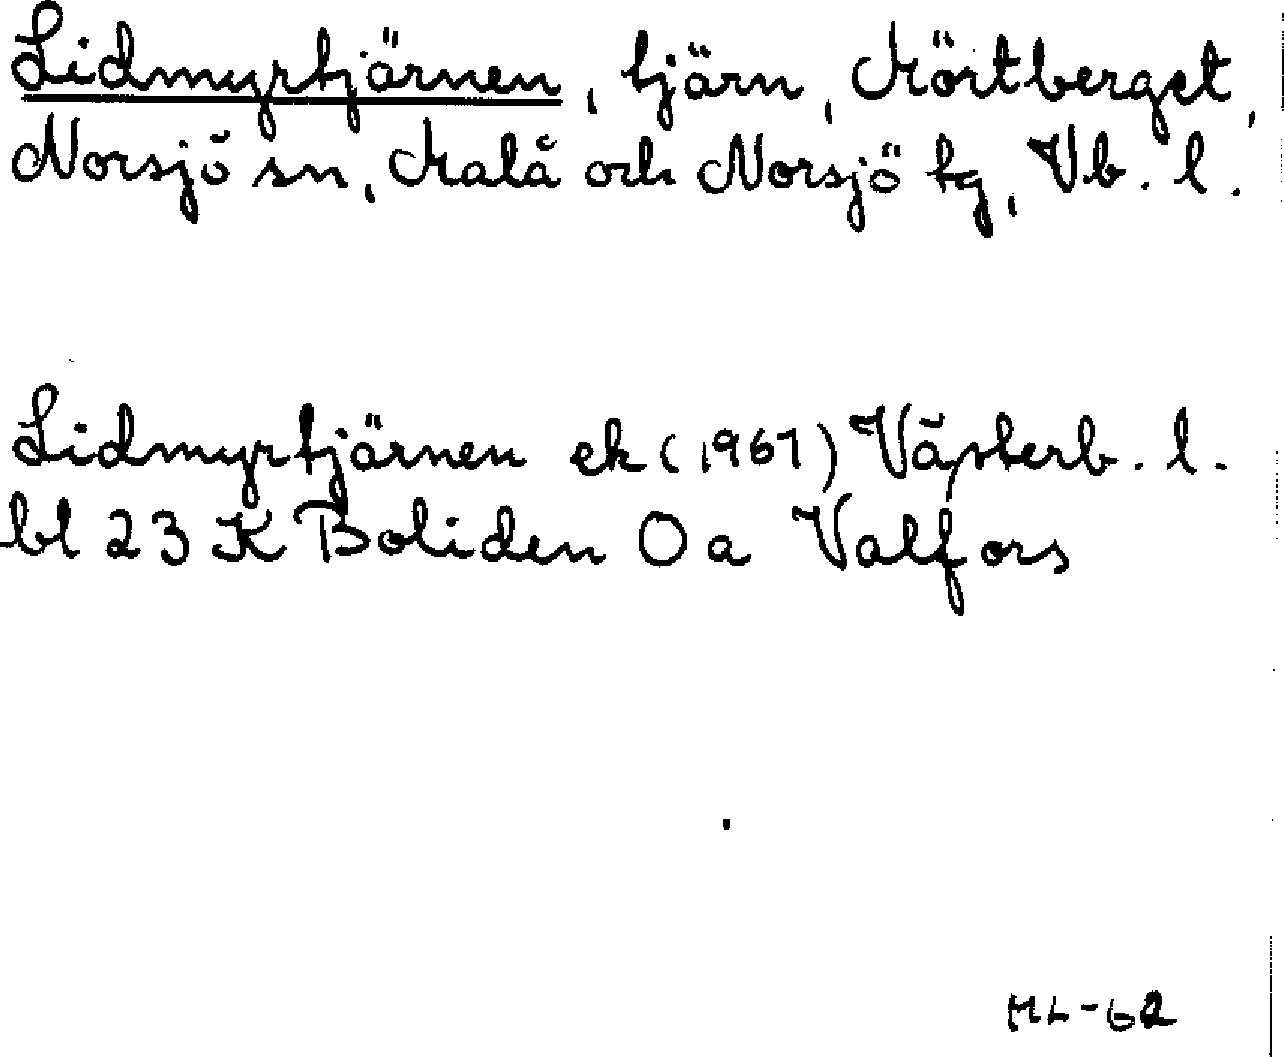 Lidmyrtjärnen, tjärn, Mörtberget,
Norsjö sn, Malå och Norsjö tg, Vb. l.
Lidmyrtjärnen ek (1961) Västerb. l.
bl 23 K Boliden O a Valfors
ML-62